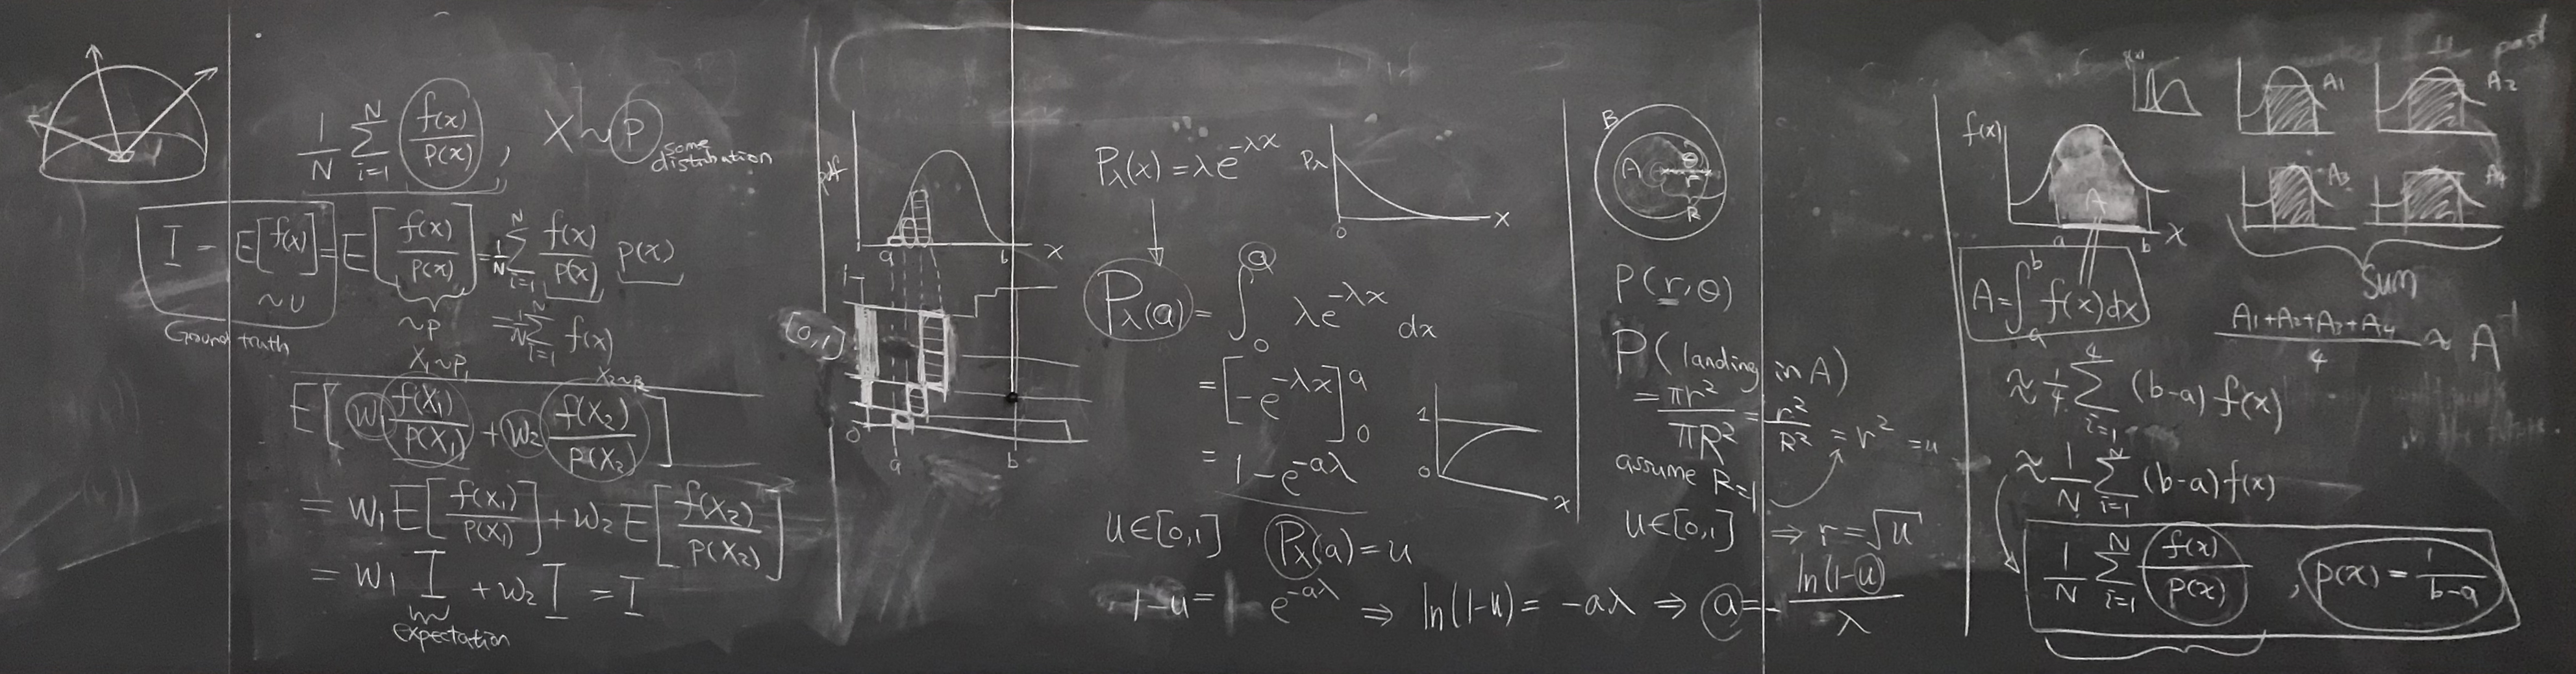 1/N Σ_{i=1}^{N} f(x)/p(x) , X ~ p
some
distribution
I = E[f(x)] = E[f(x)/p(x)] = 1/N Σ_{i=1}^{N} f(x)/p(x) p(x)
~U
~p
= 1/N Σ_{i=1}^{N} f(x)
Ground truth
X₁~p₁
X₂~p₂
E[W₁ f(X₁)/p(X₁) + W₂ f(X₂)/p(X₂)]
= W₁ E[f(X₁)/p(X₁)] + W₂ E[f(X₂)/p(X₂)]
= W₁ I + W₂ I = I
expectation
pdf
a b x
1
[0,1]
0
a b
Pλ(x) = λe^{-λx}
Pλ
0 x
Pλ(a) = ∫_0^a λe^{-λx} dx
= [-e^{-λx}]_0^a
= 1-e^{-aλ}
1
0
x
u∈[0,1] Pλ(a) = u
1-u = e^{-aλ} ⇒ ln(1-u) = -aλ ⇒ a = - ln(1-u)/λ
B
A θ r
R
P(r,θ)
P(landing in A)
= πr²/πR² = r²/R² = r² = u
assume R=1
u∈[0,1] ⇒ r=√u
past
A1 A2
A3 A4
Sum
(A1+A2+A3+A4)/4 ≈ A
f(x)
A
a b x
A = ∫_a^b f(x)dx
≈ 1/4 Σ_{i=1}^{4} (b-a) f(x)
≈ 1/N Σ_{i=1}^{N} (b-a) f(x)
1/N Σ_{i=1}^{N} f(x)/p(x) , p(x) = 1/(b-a)